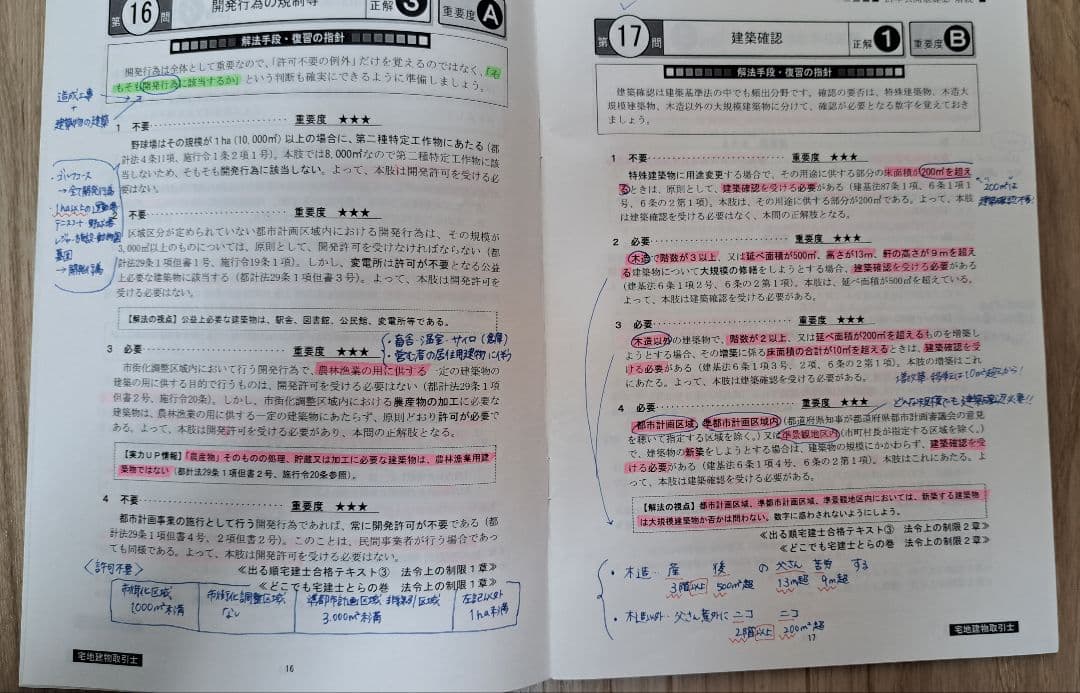 第16問 開発行為の規制等 正解 3 重要度 A
解法手段・復習の指針
開発行為は全体として重要なので、「許可不要の例外」だけを覚えるのではなく、「そ
もそも開発行為に該当するか」という判断も確実にできるように準備しましょう。
造成工事
+
建築物の建築
1 不要 重要度 ★★★
野球場はその規模が1ha(10,000㎡)以上の場合に、第二種特定工作物にあたる(都
計法4条11項、施行令1条2項1号)。本肢では8,000㎡なので第二種特定工作物に該
当しないため、そもそも開発行為に該当しない。よって、本肢は開発許可を受ける必
要はない。
・ゴルフコース
→全て開発行為
・1ha以上の運動場
テニスコート 野球場
レジャー施設・動物園
墓園
→開発行為
2 不要 重要度 ★★★
区域区分が定められていない都市計画区域内における開発行為は、その規模が
3,000㎡以上のものについては、原則として、開発許可を受けなければならない(都
計法29条1項但書1号、施行令19条1項)。しかし、変電所は許可が不要となる公益
上必要な建築物に該当する(都計法29条1項但書3号)。よって、本肢は開発許可を
受ける必要はない。
【解法の視点】公益上必要な建築物は、駅舎、図書館、公民館、変電所等である。
3 必要 重要度 ★★★
・畜舎・温室・サイロ(倉庫)
・営む者の居住用建物に(不)
市街化調整区域内において行う開発行為で、農林漁業の用に供する一定の建築物の
建築の用に供する目的で行うものは、開発許可を受ける必要はない(都計法29条1項
但書2号、施行令20条)。しかし、市街化調整区域内における農産物の加工に必要な
建築物は、農林漁業の用に供する一定の建築物にあたらず、原則どおり許可が必要で
ある。よって、本肢は開発許可を受ける必要があり、本問の正解肢となる。
【実力UP情報】「農産物」そのものの処理、貯蔵又は加工に必要な建築物は、農林漁業用建
築物ではない(都計法29条1項但書2号、施行令20条参照)。
4 不要 重要度 ★★★
都市計画事業の施行として行う開発行為であれば、常に開発許可が不要である(都
計法29条1項但書4号、2項但書2号)。このことは、民間事業者が行う場合であっ
ても同様である。よって、本肢は開発許可を受ける必要はない。
≪出る順宅建士合格テキスト③ 法令上の制限1章≫
≪どこでも宅建士とらの巻 法令上の制限1章≫
〈許可不要〉
市街化区域 1,000㎡未満
市街化調整区域 なし
準都市計画区域、非線引区域 3,000㎡未満
左記以外 1ha未満
宅地建物取引士
16
第17問 建築確認 正解 1 重要度 B
解法手段・復習の指針
建築確認は建築基準法の中でも頻出分野です。確認の要否は、特殊建築物、木造大
規模建築物、木造以外の大規模建築物に分けて、確認が必要となる数字を覚えておき
ましょう。
1 不要 重要度 ★★★
特殊建築物に用途変更する場合で、その用途に供する部分の床面積が200㎡を超え
るときは、原則として、建築確認を受ける必要がある(建基法87条1項、6条1項1
号、6条の2第1項)。本肢は、その用途に供する部分が200㎡である。よって、本肢
は建築確認を受ける必要はなく、本問の正解肢となる。
200㎡は
建築確認不要!
2 必要 重要度 ★★★
木造で階数が3以上、又は延べ面積が500㎡、高さが13m、軒の高さが9mを超え
る建築物について大規模の修繕をしようとする場合、建築確認を受ける必要がある
(建基法6条1項2号、6条の2第1項)。本肢は、延べ面積が500㎡を超えている。
よって、本肢は建築確認を受ける必要がある。
3 必要 重要度 ★★★
木造以外の建築物で、階数が2以上、又は延べ面積が200㎡を超えるものを増築し
ようとする場合、その増築に係る床面積の合計が10㎡を超えるときは、建築確認を受
ける必要がある(建基法6条1項3号、2項、6条の2第1項)。本肢の増築はこれ
にあたる。よって、本肢は建築確認を受ける必要がある。
増改築 移転は10㎡超から!
4 必要 重要度 ★★★
どんな規模でも建築確認必要!!
都市計画区域、準都市計画区域内(都道府県知事が都道府県都市計画審議会の意見
を聴いて指定する区域を除く。)又は準景観地区内(市町村長が指定する区域を除く。)
で、建築物の新築をしようとする場合は、建築物の規模にかかわらず、建築確認を受
ける必要がある(建基法6条1項4号、6条の2第1項)。本肢はこれにあたる。よっ
て、本肢は建築確認を受ける必要がある。
【解法の視点】都市計画区域、準都市計画区域、準景観地区内においては、新築する建築物
は大規模建築物か否かは問わない。数字に惑わされないようにしよう。
≪出る順宅建士合格テキスト③ 法令上の制限2章≫
≪どこでも宅建士とらの巻 法令上の制限2章≫
・木造…産 後 の父さん 苦労 する
3階以上 500㎡超 13m超 9m超
・木造以外…父さん意外に ニコ ニコ
2階以上 200㎡超
17
宅地建物取引士